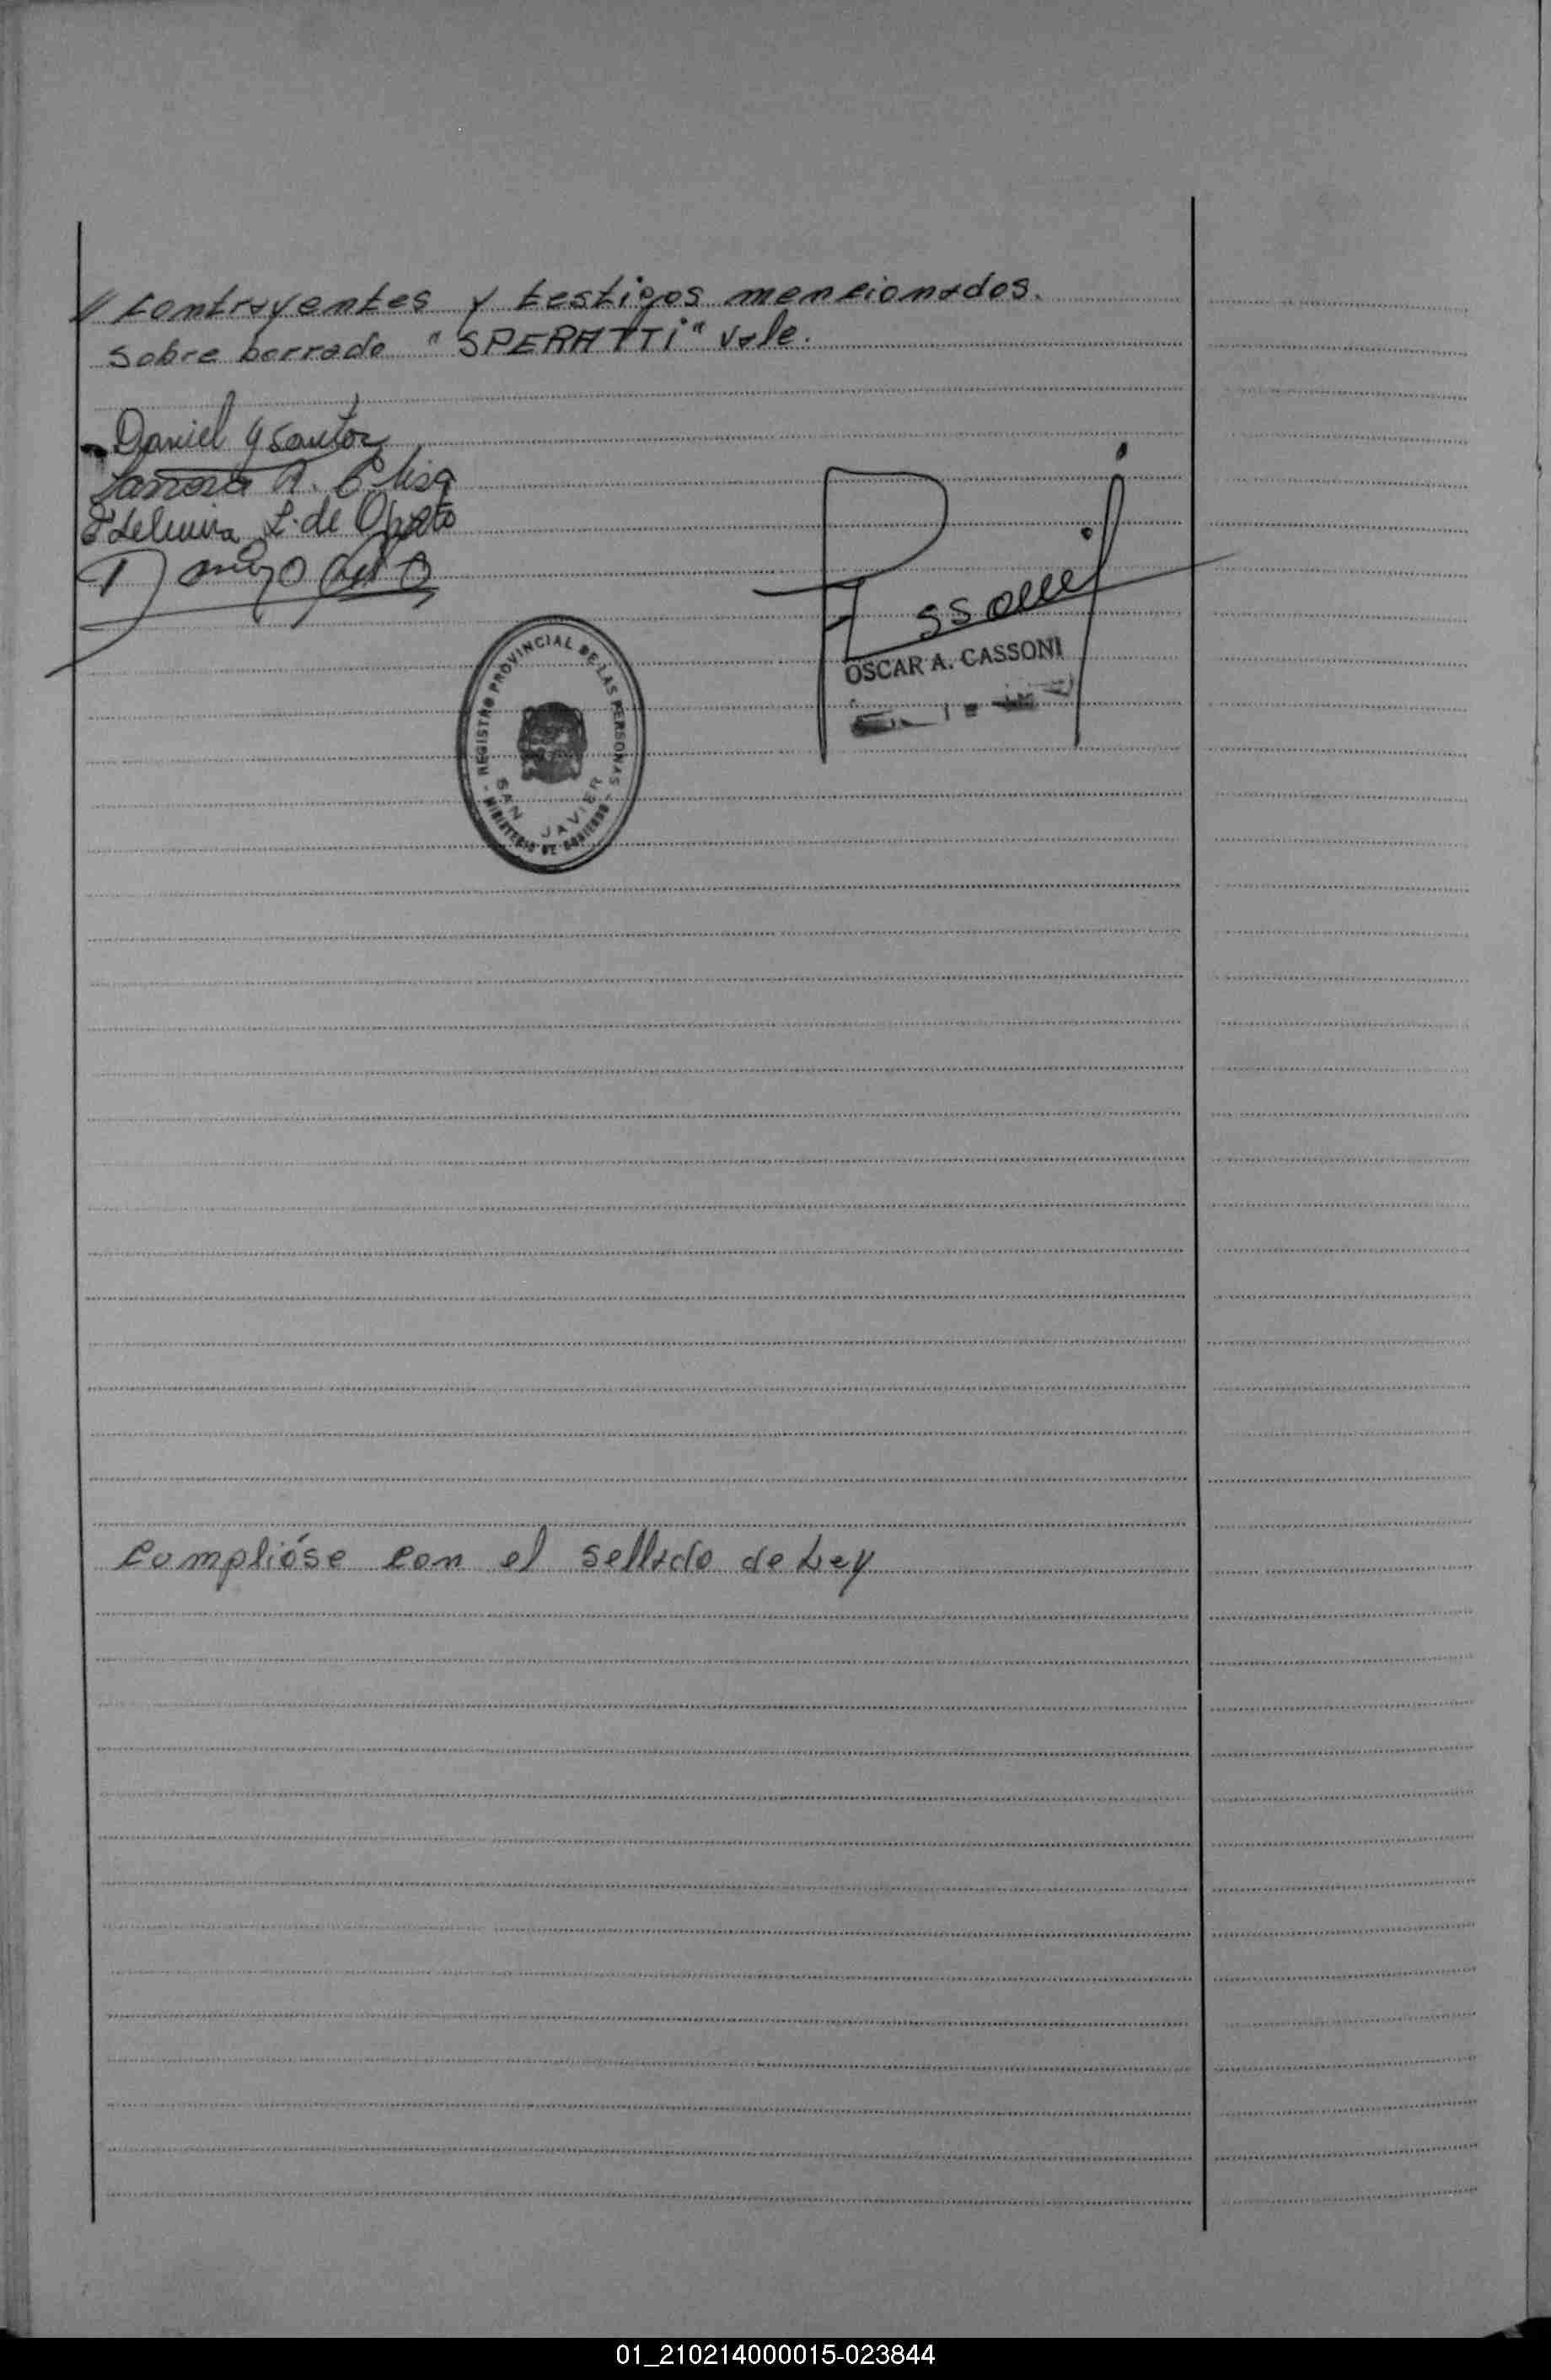 // contrayentes y testigos mencionados.
Sobre borrado "SPERATTI" Vale.
Daniel
A. Elisa
L. de
OSCAR A. CASSONI
REGISTRO PROVINCIAL DE LAS PERSONAS
SAN JAVIER
MINISTERIO DE GOBIERNO
Cumplióse con el sellado de Ley
01_210214000015-023844